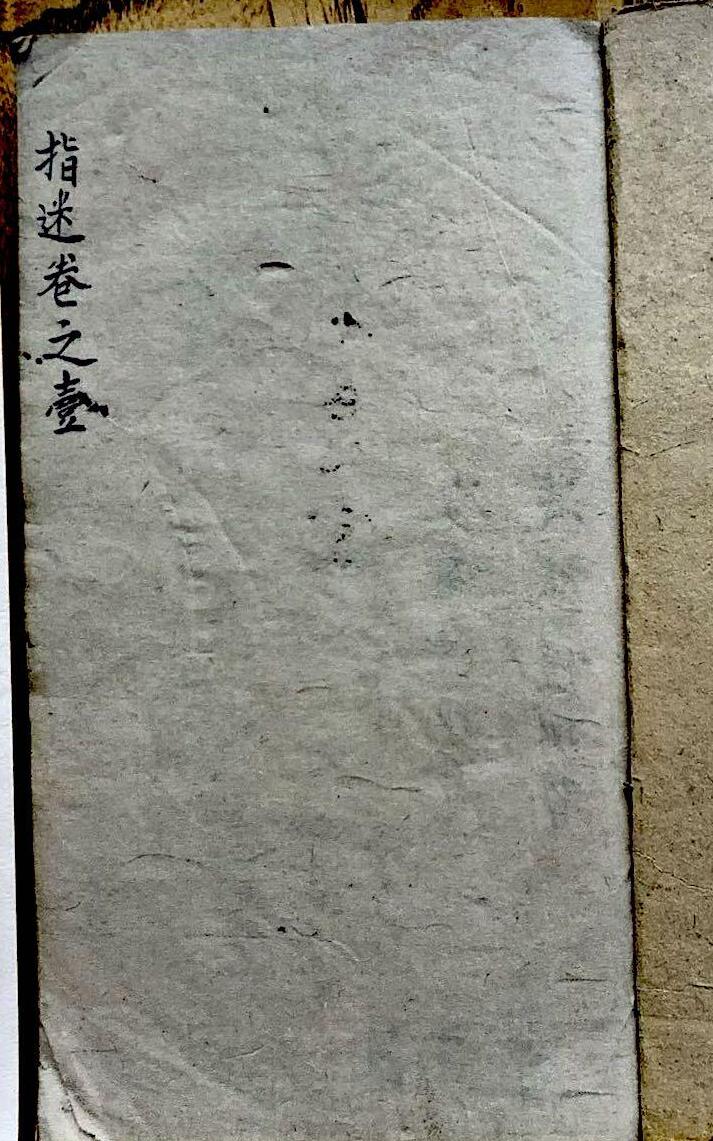 指迷卷之壹